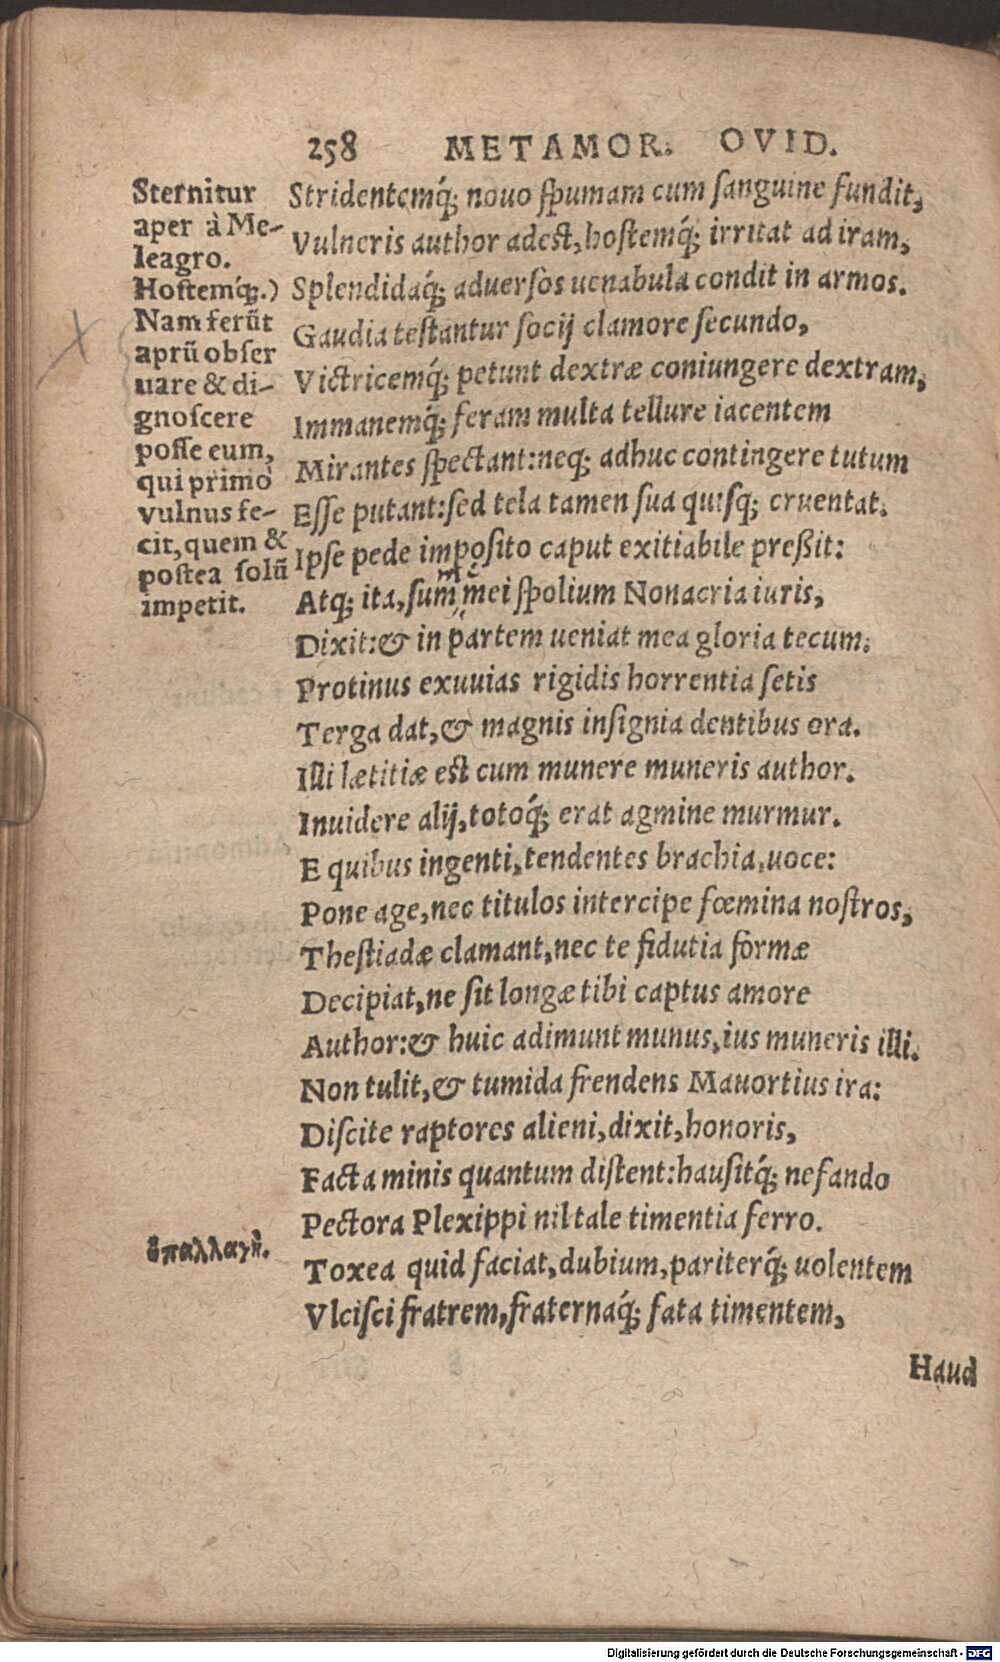 258 METAMOR. OVID.
Sternitur
aper à Me-
leagro.
Hostemq́;.)
Nam ferūt
aprū obser
uare & di-
gnoscere
posse eum,
qui primò
vulnus fe-
cit, quem &
postea solū
impetit.
Stridentemq́; nouo spumam cum sanguine fundit,
Vulneris author adest, hostemq́; irritat ad iram,
Splendidaq́; aduersos uenabula condit in armos.
Gaudia testantur socij clamore secundo,
Victricemq́; petunt dextræ coniungere dextram,
Immanemq́; feram multa tellure iacentem
Mirantes spectant: neq; adhuc contingere tutum
Esse putant: sed tela tamen sua quisq; cruentat.
Ipse pede imposito caput exitiabile preßit:
Atq; ita, sum mei spolium Nonacria iuris,
Dixit: & in partem ueniat mea gloria tecum.
Protinus exuuias rigidis horrentia setis
Terga dat, & magnis insignia dentibus ora.
Illi lætitiæ est cum munere muneris author.
Inuidere alij, totoq́; erat agmine murmur.
E quibus ingenti, tendentes brachia, uoce:
Pone age, nec titulos intercipe fœmina nostros,
Thestiadæ clamant, nec te fidutia formæ
Decipiat, ne sit longæ tibi captus amore
Author: & huic adimunt munus, ius muneris illi.
Non tulit, & tumida frendens Mauortius ira:
Discite raptores alieni, dixit, honoris,
Facta minis quantum distent: hausitq́; nefando
Pectora Plexippi nil tale timentia ferro.
ὑπαλλαγὴ.
Toxea quid faciat, dubium, pariterq́; uolentem
Vlcisci fratrem, fraternaq́; fata timentem,
Haud
Digitalisierung gefördert durch die Deutsche Forschungsgemeinschaft - DFG